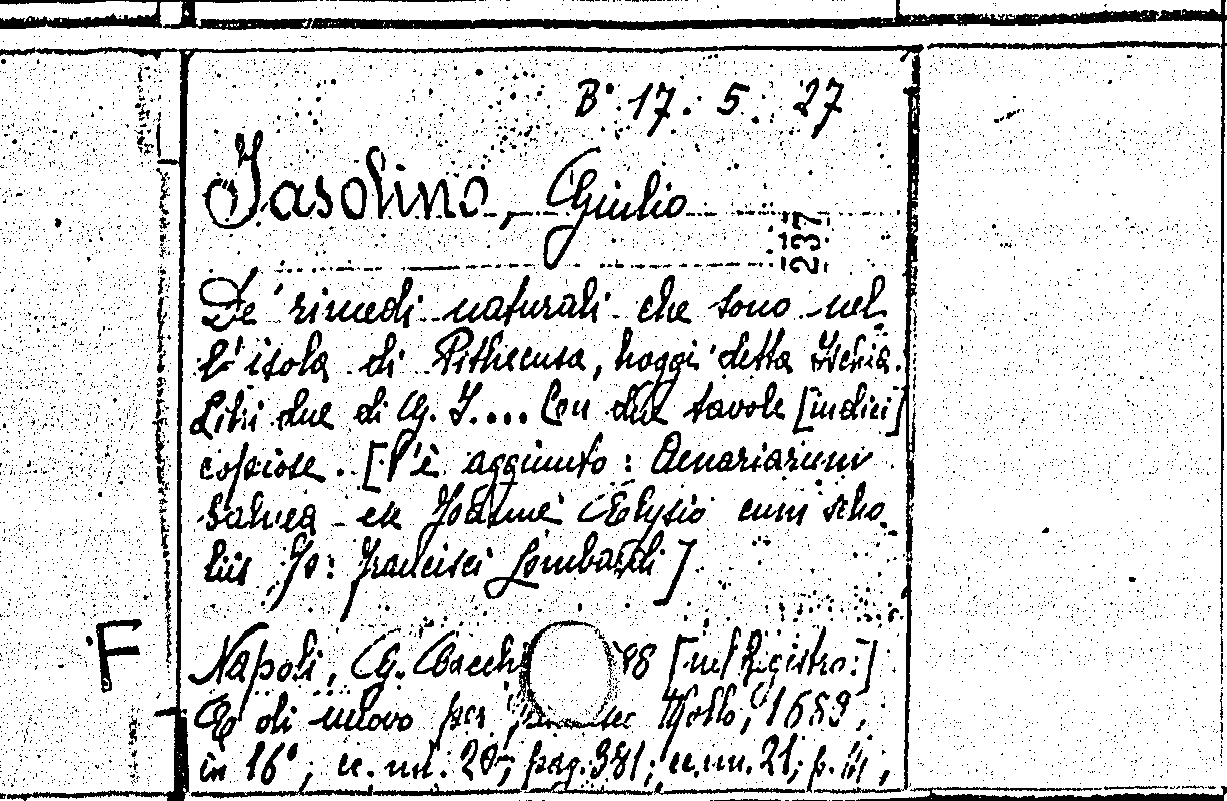 B° 17. 5. 27
Jasolino, Giulio
237
De' rimedi naturali che sono nel
l'isola di Pithecusa, hoggi detta Ischia.
Libri due di G. J.... Con due tavole [indici]
copiose. [V'è aggiunto: Aenariarum
balnea ex Joanne Elysio cum scho
liis Jo: Francisci Lombardi]
F
Napoli, G. Cacch 88 [nel Registro:]
E di nuovo per Mollo, 1689,
in 16°; cc. nn. 20; pag. 381; cc. nn. 21; p.